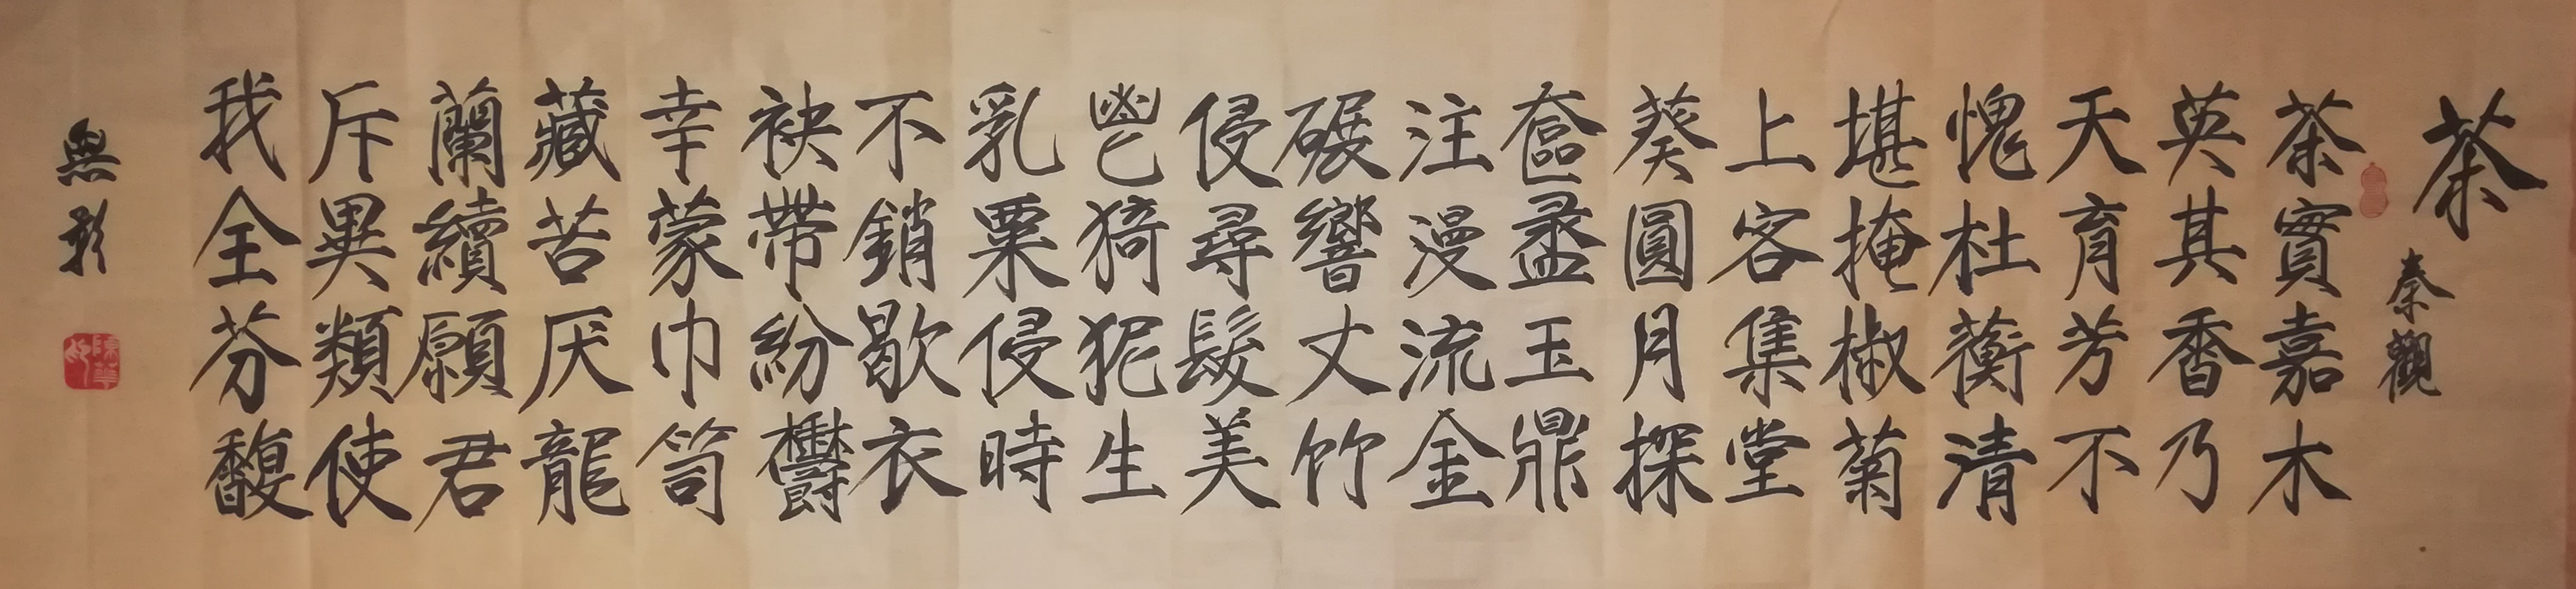 茶
秦觀
茶實嘉木
英其香乃
天育芳不
愧杜蘅清
堪掩椒菊
上客集堂
葵圓月探
奩盝玉鼎
注漫流金
碾響丈竹
侵尋髮美
鬯猗狔生
乳粟侵時
不銷歇衣
袂帶紛鬱
幸蒙巾笥
藏苦厌龍
蘭續願君
斥異類使
我全芬馥
無